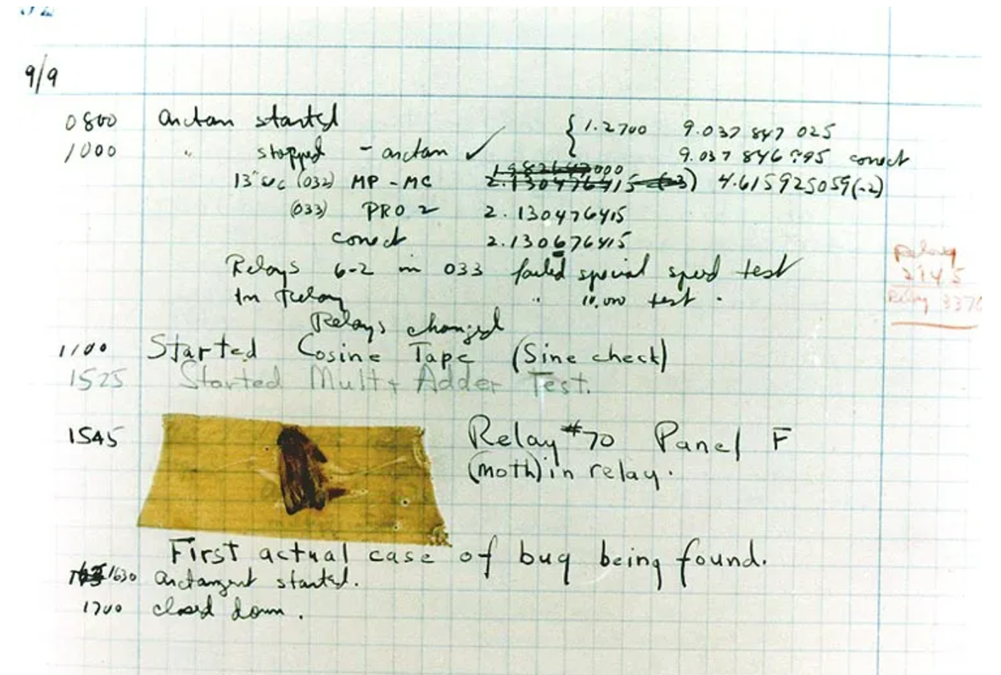 9/9
0800 arctan started { 1.2700 9.037 847 025
1000 " stopped - arctan ✓ 9.037 846 995 correct
13" sec (032) MP - MC 2.130476415 4.615925059(-2)
(033) PRO 2 2.130476415
correct 2.130676415
Relays 6-2 in 033 failed special speed test
In Relay " 10,000 test.
Relay
2145
Relay 3370
Relays changed
1100 Started Cosine Tape (Sine check)
1525 Started Mult + Adder Test.
1545 Relay #70 Panel F
(moth) in relay.
First actual case of bug being found.
1630 arctangent started.
1700 closed down.